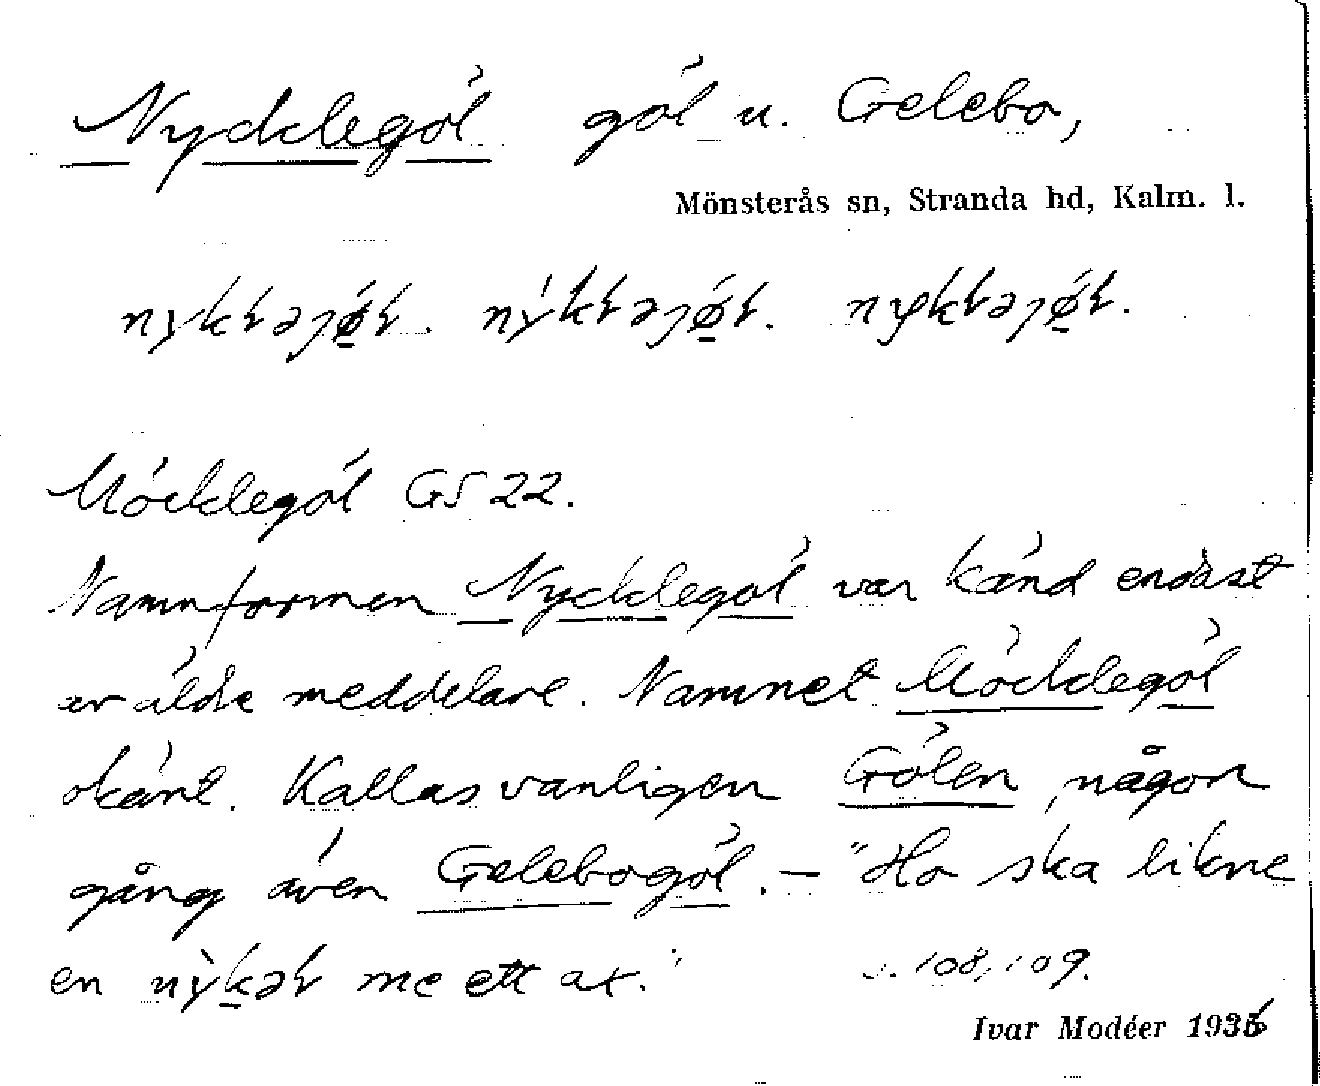 Nycklegöl göl u. Gelebo,
Mönsterås sn, Stranda hd, Kalm. l.
Möcklegöl GS 22.
Namnformen Nycklegöl var känd endast
av äldre meddelare. Namnet Möcklegöl
okänt. Kallas vanligen Gölen, någon
gång även Gelebogöl. – "Ho ska likne
en me ett ax."
108, 109.
Ivar Modéer 1936